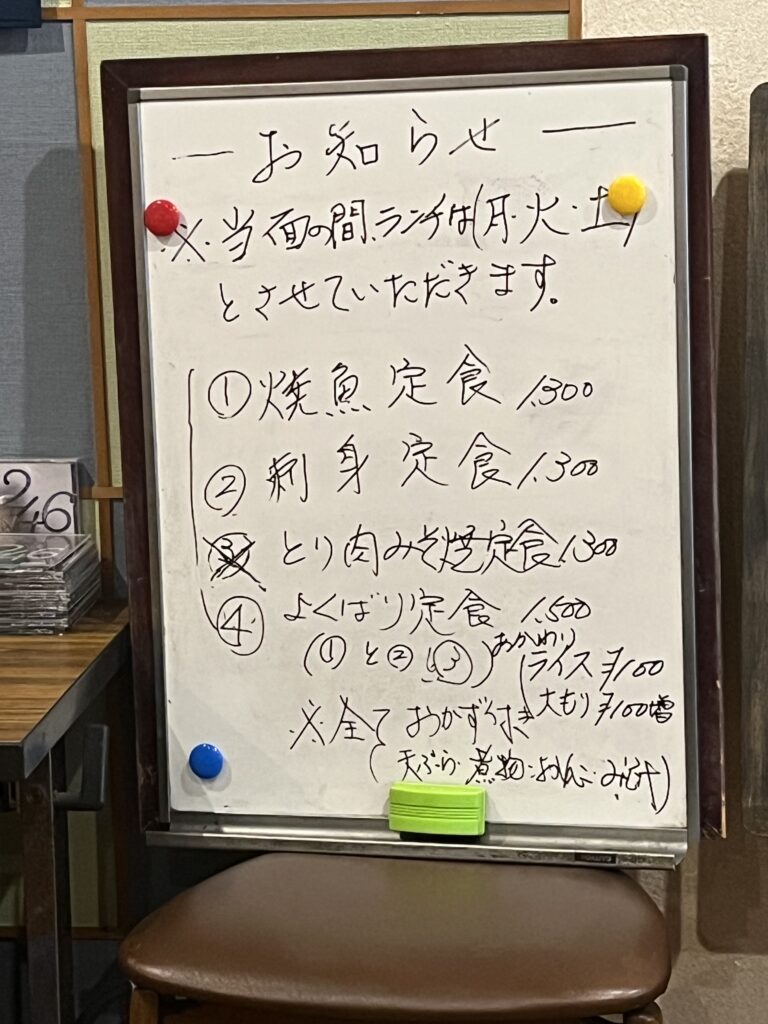 — お知らせ —
※.当面の間、ランチは(月・火・土)
とさせていただきます。
① 焼魚定食 1.300
② 刺身定食 1.300
③ とり肉みそ焼定食 1.300
④ よくばり定食 1.500
(①と②(③)
おかわり
ライス ¥100
大もり ¥100増
※.全ておかずつ付き
(天ぷら・煮物・おしんこ・みそ汁)
246